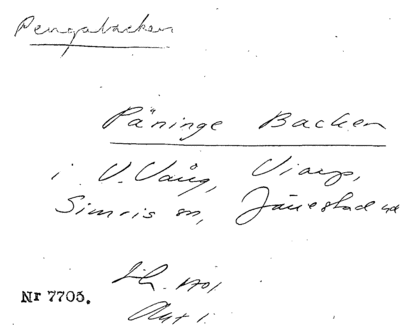 Pengabacken
Päninge Backen
i V. Vång, Viarp,
Simris sn, Järrestad hd
Sk.
Nr 7705.
Akt 1.